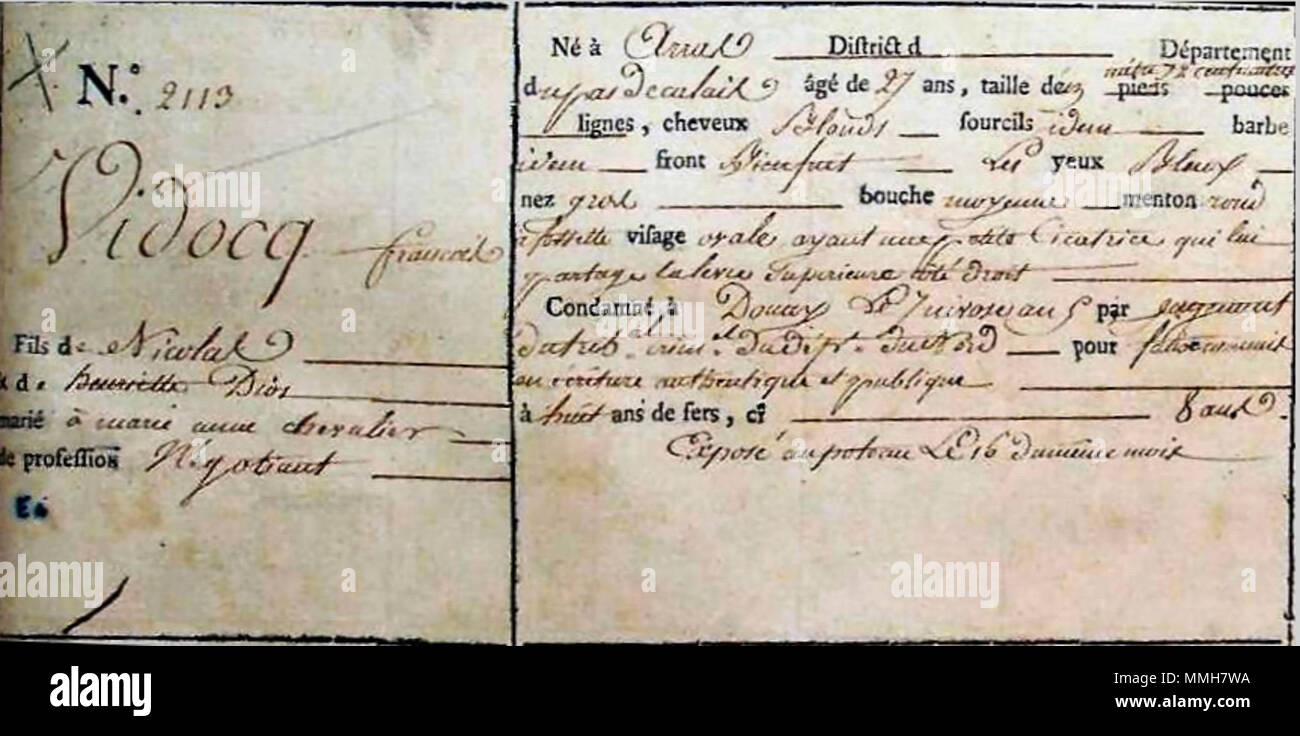 N.° 2113
Vidocq françois
Fils de Nicolas
& de henriette Dion
marié à marie anne chevalier
de profession Négotiant
E6
Né à Arras District d Département
du pas de calais âgé de 27 ans, taille de mètre 72 centimètres pieds pouces
lignes, cheveux Blonds sourcils idem barbe
idem front Bienfait Les yeux Bleux
nez gros bouche moyenne menton rond
à fossette visage ovale ayant une petite Cicatrice qui lui
partage la levre Superieure côté droit
Condamné à Douay Le 7 nivose an 5 par jugement
du trib.al crim.el Du dépt. Du Nord pour faux commis
en écriture authentique et publique
à huit ans de fers, cy 8 ans.
Exposé au poteau LE 16 du même mois
alamy
alamy
Image ID: MMH7WA
www.alamy.com